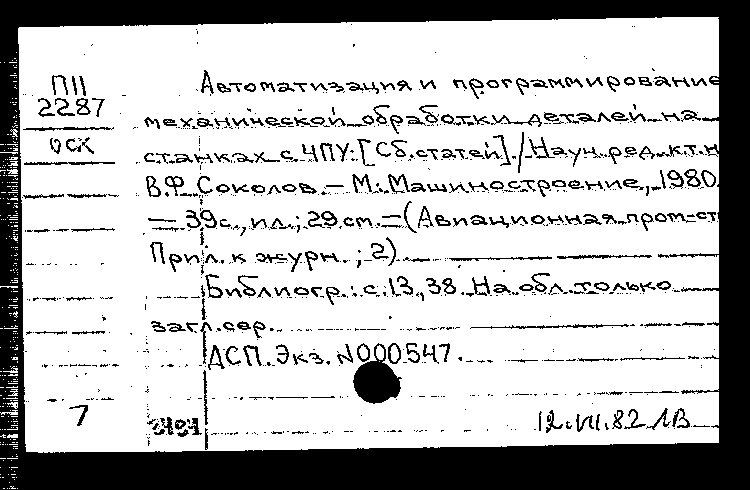 ПII
2287
ОСК
Автоматизация и программирование
механической обработки деталей на
станках с ЧПУ. [Сб. статей]. / Науч. ред. к.т.н
В.Ф. Соколов. – М.: Машиностроение, 1980.
– 39 с., ил.; 29 см. – (Авиационная пром-ст
Прил. к журн.; 2)
Библиогр.: с. 13, 38. На обл. только
загл. сер.
ДСП. Экз. N000547.
7
12.VII.82 ЛВ